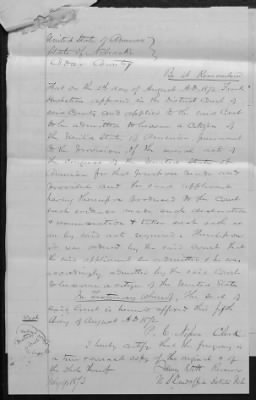 United States of America
State of Nebraska
County
Be it Remembered
That on the 5th day of August A.D. 1872 Frank
appeared in the District Court of
said County and applied to the said Court
to be admitted to become a citizen of
the United States of America pursuant
to the provisions of the several acts of
the Congress of the United States of
America for that purpose made and
provided and the said applicant
having thereupon produced to the Court
such evidence made such declaration
renunciation & taken such oath as
are by said acts required. Thereupon
it was ordered by the said Court that
the said applicant be admitted & he was
accordingly admitted by the said Court
to become a citizen of the United States
In Testimony whereof, the seal of
said Court is hereunto affixed this fifth
day of August A.D. 1872
Clerk
I hereby certify that the foregoing is
a true & exact copy of the original & of
the whole thereof
1873